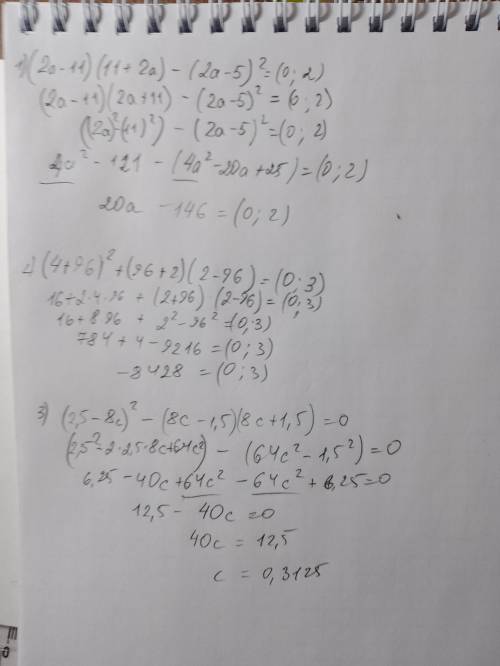 1) (2a-11)(11+2a) - (2a-5)² = (0; 2)
(2a-11)(2a+11) - (2a-5)² = (0; 2)
((2a)²(11)²) - (2a-5)² = (0; 2)
4a² - 121 - (4a² - 20a + 25) = (0; 2)
20a - 146 = (0; 2)
2) (4+96)² + (96+2)(2-96) = (0; 3)
16+2·4·96 + (2+96)(2-96) = (0; 3)
16+896 + 2² - 96² = (0; 3)
784 + 4 - 9216 = (0; 3)
-8428 = (0; 3)
3) (2,5-8c)² - (8c-1,5)(8c+1,5) = 0
(2,5²-2·2,5·8c+64c²) - (64c² - 1,5²) = 0
6,25 - 40c + 64c² - 64c² + 6,25 = 0
12,5 - 40c = 0
40c = 12,5
c = 0,3125